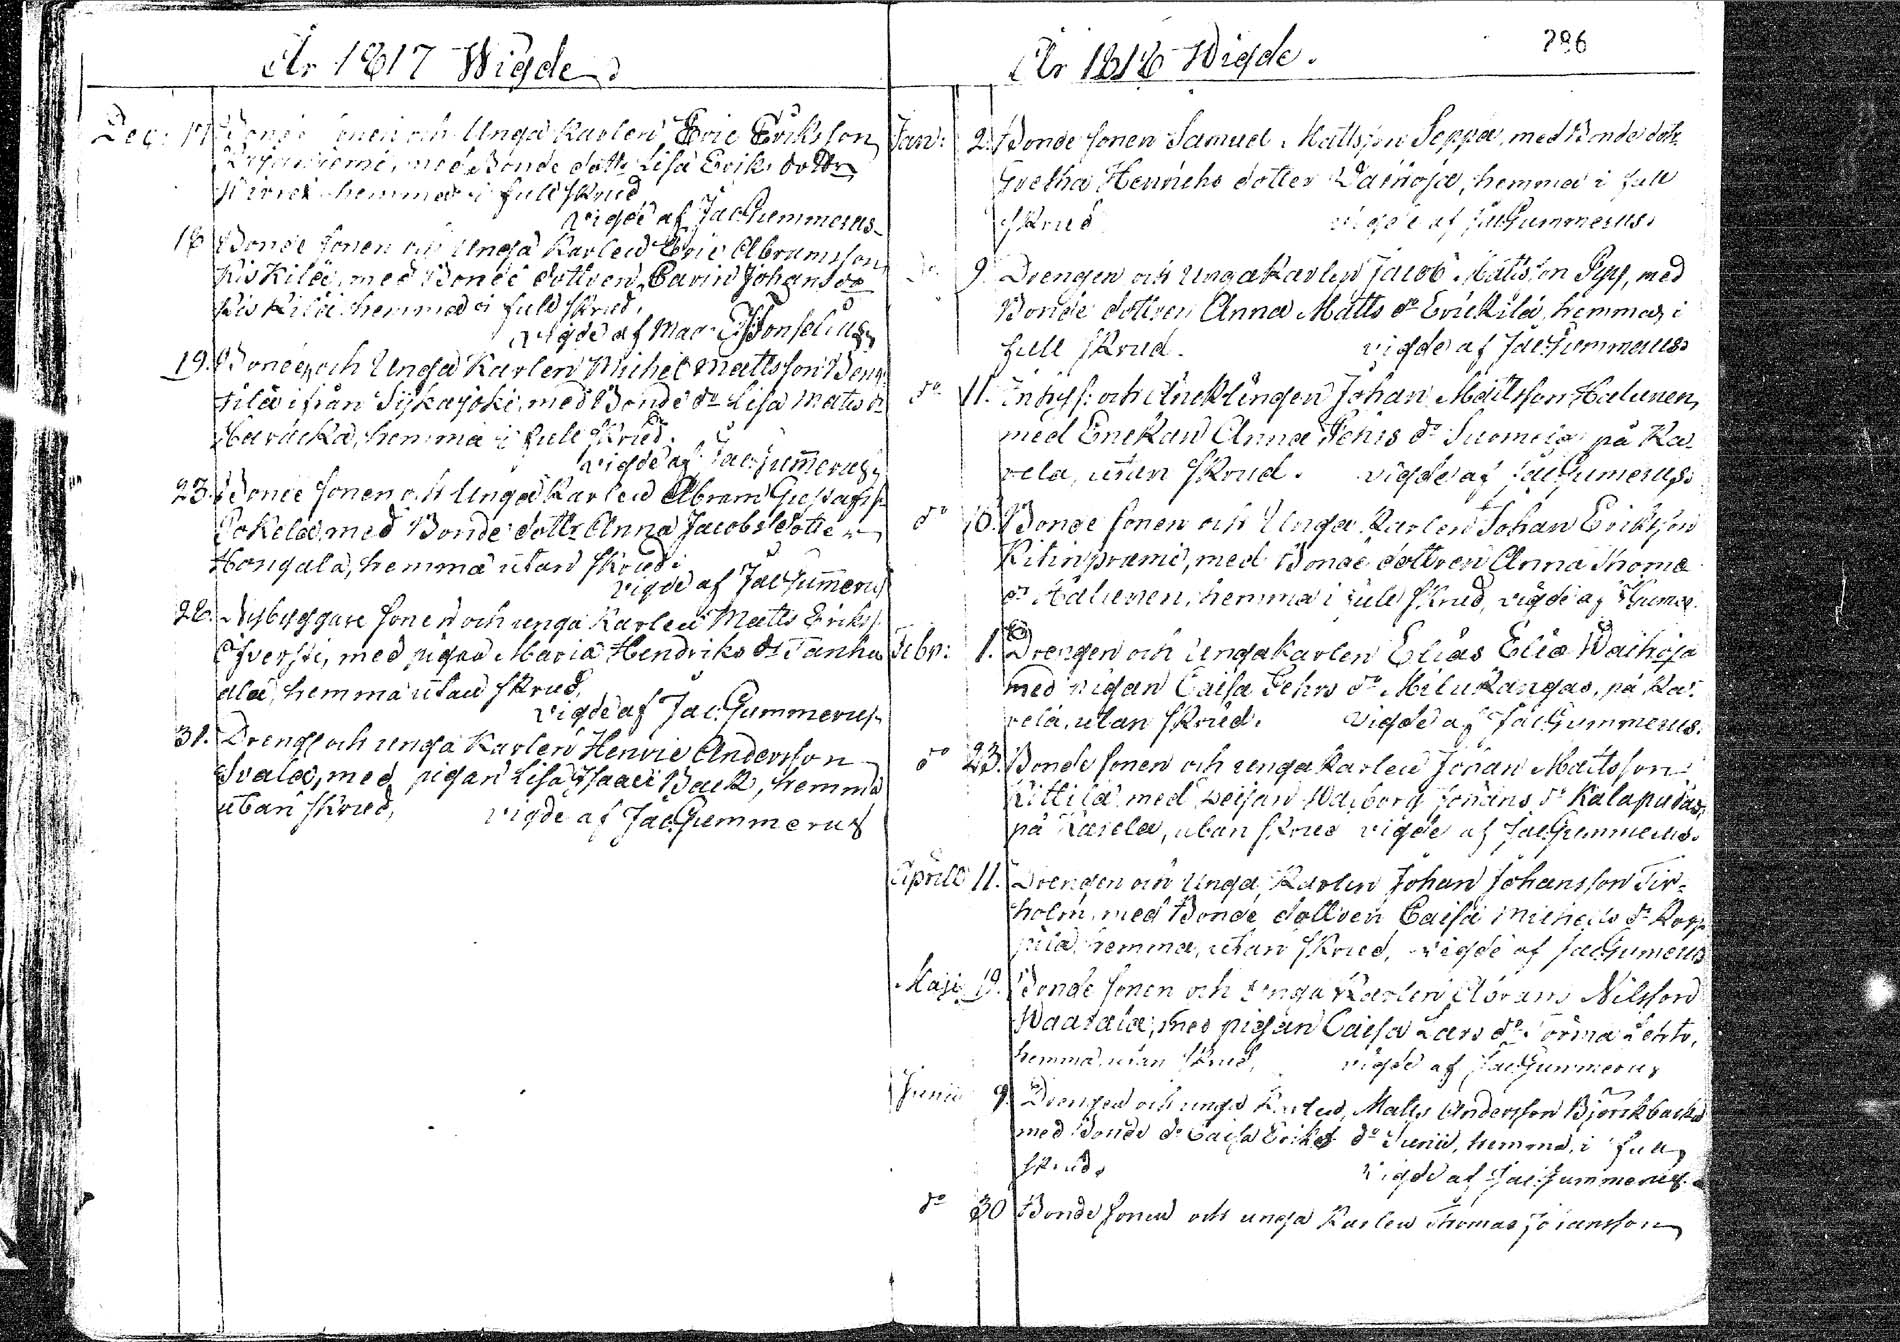 År 1817 Wigde
Dec: 17 Bonde sonen och Unga Karlen Eric Eriksson
med Bonde dottr Lisa Eriks dottr
hemma i full skrud
vigde af Jac Gummerus
18 Bonde sonen och Unga Karlen Eric Abramsson
Kiskilä, med Bonde dottren Carin Johans dr
Kiskilä hemma i full skrud.
vigde af Mag
19. Bonden och Unga Karlen Michel Mattsson
ifrån Sijkajoki, med Bonde dr Lisa Matts dr
hemma i full skrud.
vigde af Jac Gum̄erus
23. Bonde sonen och Unga Karlen Abram Gustafss:
Pokela, med Bonde dottr Anna Jacobs dotter
Hongala, hemma utan skrud.
vigde af Jac Gum̄erus
28. Nybyggare sonen och unga Karlen Matts Eriks:
med pigan Maria Hendriks dr Tanhu
ala, hemma utan skrud,
vigde af Jac. Gummerus
31. Drenge och unga Karlen Henric Andersson
Svala, med pigan Lisa Isaaci Back, hemma
utan skrud, vigde af Jac Gummerus
År 1818 Wigde. 286
Jan: 2. Bonde sonen Samuel Mattsson Seppä, med Bonde dottr
Gretha Henrichs dotter Wainoja, hemma i full
skrud vigde af Jac Gummerus.
Do 9. Drengen och Unga Karlen Jacob Mattsson Pyy, med
Bonde dottren Anna Matts dr Erickilä, hemma, i
full skrud. vigde af Jac Gummerus
do 11. Inhys: och Äncklingen Johan Mattsson Halunen,
med Enckan Anna dr på Ka-
vela, utan skrud. vigde af Jac Gumerus.
do Bonde sonen och Unga Karlen Johan Eriksson
med Bonde dottren Anna Thomæ
dr Halunen, hemma i full skrud, vigde af
Febr: 1. Drengen och Unga Karlen Elias Eliæ Waihoja
med pigan Caisa dr Milukangas, på Ka-
vela, utan skrud. vigde af Jac Gummerus.
do 23. Bonde sonen och unga karlen Johan Mattsson
Kittilä med pigan Walborg Johans dr Kalapudas,
på Kavela, utan skrud vigde af Jac Gummerus.
Aprill 11. Drengen och Unga Karlen Johan Johansson Tir-
holm, med Bonde dottren Caisa Michels dr
hemma, utan skrud, vigde af Jac Gumerus
Maji 19. Bonde sonen och Unga Karlen Abram Nilsson
Waarala, med pigan Caisa Lars dr Törmä Lehto,
hemma utan skrud, vigde af Jac Gummerus
Junii 9. Drengen och unga Karlen, Matts Andersson Björkbacka
med Bonde dr Caisa Eriks dr Junii, hemma, i full
skrud. vigde af Jac Gummerus.
do 30 Bonde sonen och unga Karlen Thomas Johansson